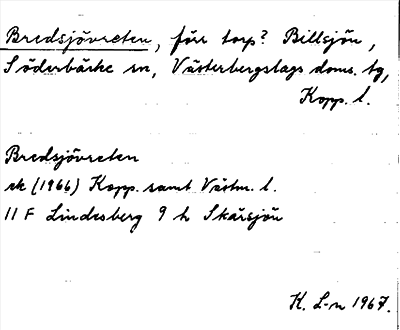 Bredsjövreten, förr torp? Billsjön,
Söderbärke sn, Västerbergslags doms. tg,
Kopp. l.
Bredsjövreten
ek (1966) Kopp. samt Västm. l.
11 F Lindesberg 9 h Skärsjön
K. L-n 1967.